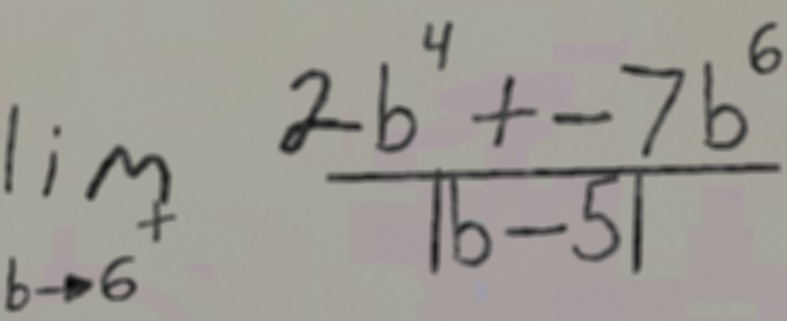 lim_{b→6^+} \frac{2b^4 + -7b^6}{|b-5|}